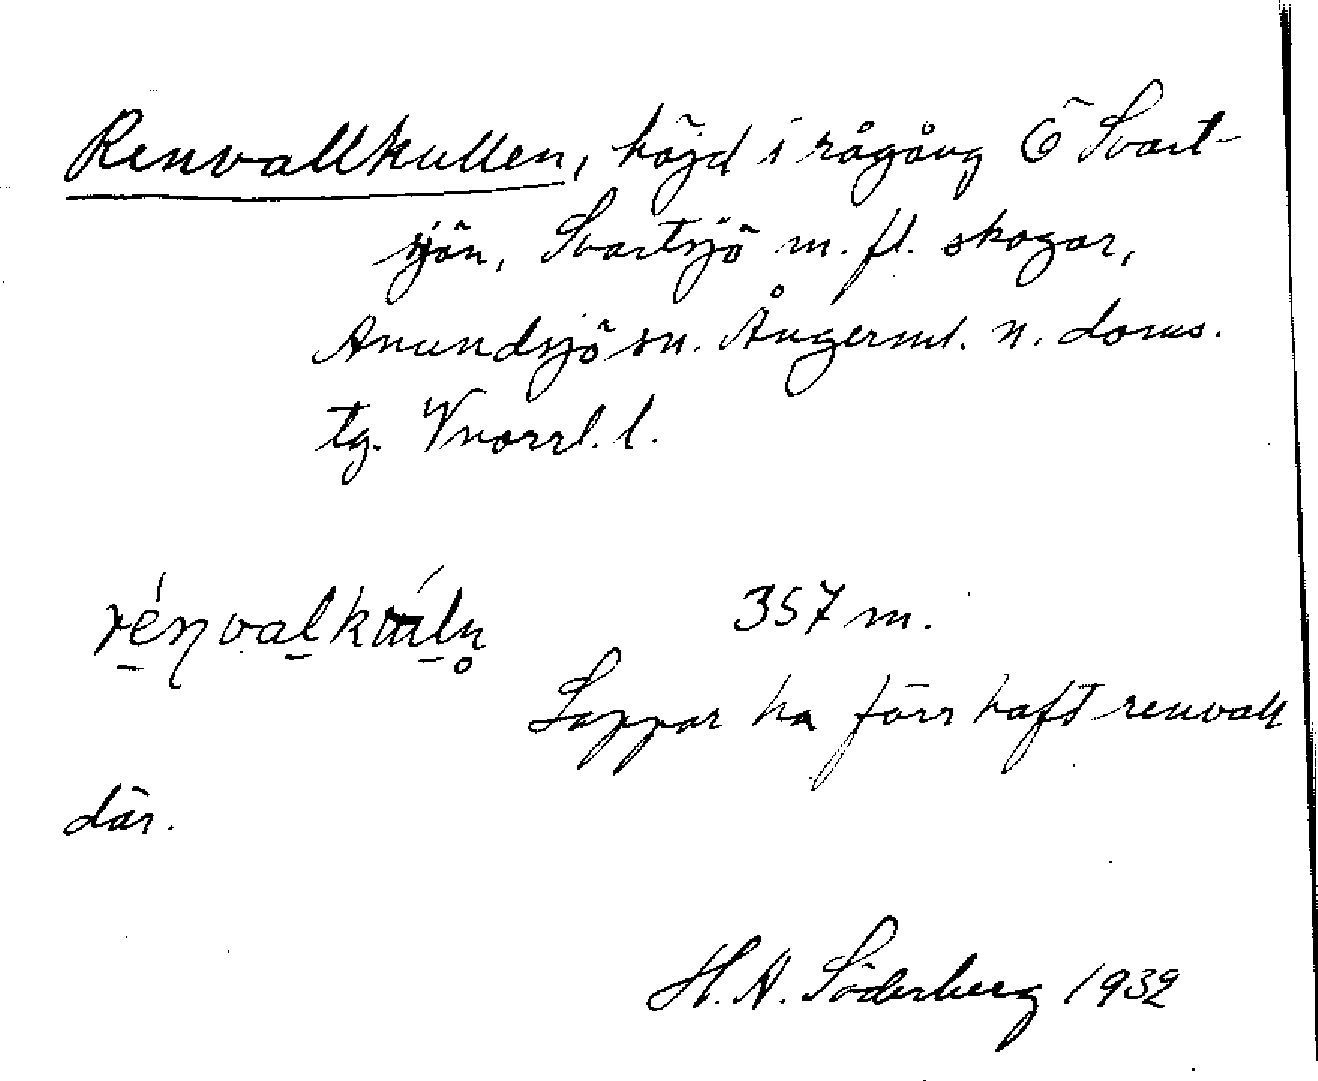 Renvallkullen, höjd i rågång Ö Svart-
sjön, Svartsjö m. fl. skogar,
Anundsjö sn. Ångerml. n. doms.
tg. Vnorrl. l.
357 m.
Lappar ha förr haft renvall
där.
H. A. Söderberg 1932